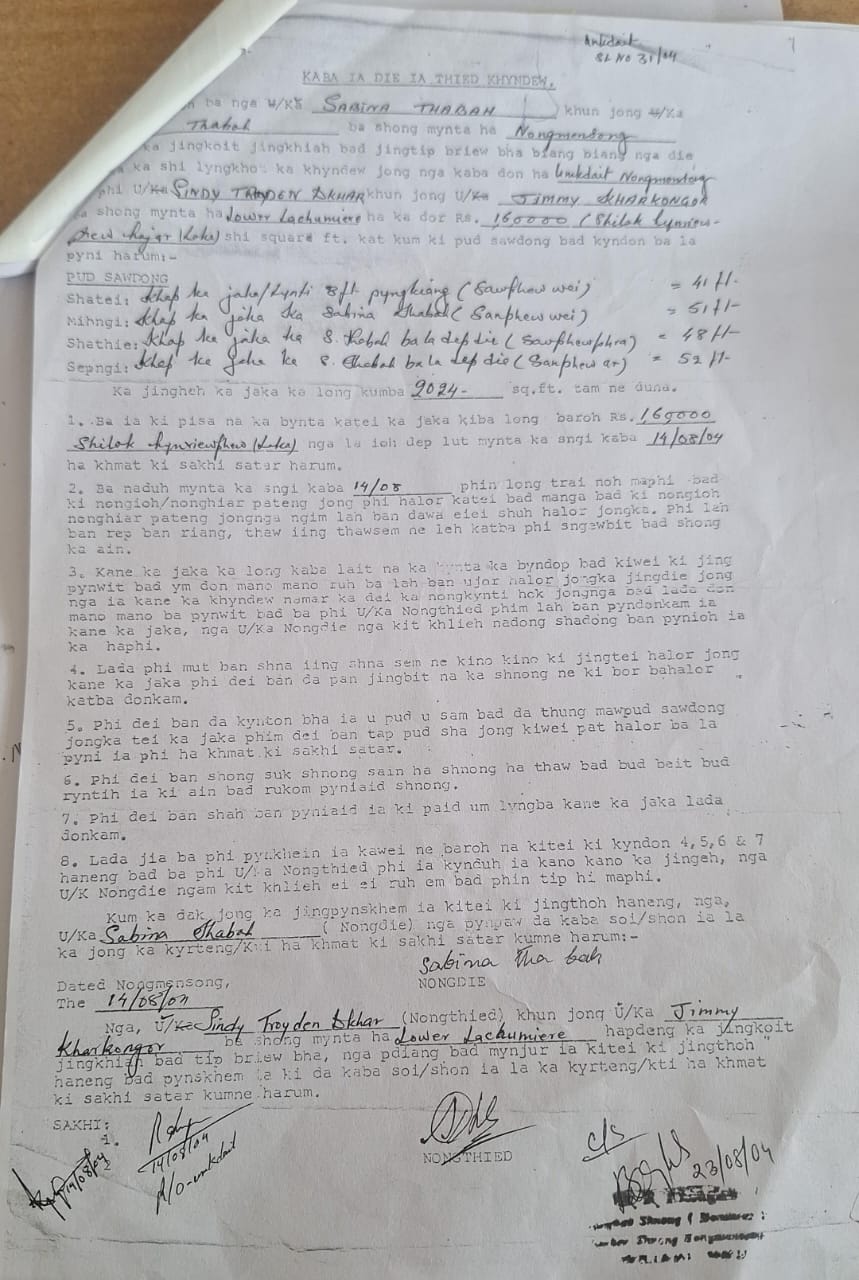 Umkdait
Sl No 31/04
KABA IA DIE IA THIED KHYNDEW.
ba nga U/Ka SABINA THABAH khun jong U/Ka
Thabah ba shong mynta ha Nongmensong
ka jingkoit jingkhiah bad jingtip briew bha biang biang nga die
ka shi lyngkhot ka khyndew jong nga kaba don ha Umkdait Nongmensong
phi U/Ka SINDY TROYDEN DKHAR khun jong U/Ka JIMMY KHARKONGOR
shong mynta ha Lower Lachumiere ha ka dor Rs. 1,60000 (Shilak hynriew-
phew hajar (Laka) shi square ft. kat kum ki pud sawdong bad kyndon ba la
pyni harum:-
PUD SAWDONG
Shatei: Khap ka jaka/Lynti 8ft pyngkiang (Sawphew wei) = 41 ft-
Mihngi: Khap ka jaka ka Sabina Thabah (Sanphew wei) = 51 ft-
Shathie: Khap ka jaka ka S. Thabah ba la dep die (Sawphewphra) = 48 ft-
Sepngi: Khap ka jaka ka S. Thabah ba la dep die (Sanphew ar) = 52 ft-
Ka jingheh ka jaka ka long kumba 2024- sq.ft. tam ne duna.
1. Ba ia ki pisa na ka bynta katei ka jaka kiba long baroh Rs. 1,60000
Shilak hynriewphew (Laka) nga la ioh dep lut mynta ka sngi kaba 14/08/04
ha khmat ki sakhi satar harum.
2. Ba naduh mynta ka sngi kaba 14/08 phin long trai noh maphi bad
ki nongioh/nonghiar pateng jong phi halor katei bad manga bad ki nongioh
nonghiar pateng jongnga ngim lah ban dawa eiei shuh halor jongka. Phi lah
ban rep ban riang, thaw iing thawsem ne leh katba phi sngewbit bad shong
ka ain.
3. Kane ka jaka ka long kaba lait na ka bynta ka byndop bad kiwei ki jing
pynwit bad ym don mano mano ruh ba lah ban ujor halor jongka jingdie jong
nga ia kane ka khyndew namar ka dei ka nongkynti hok jongnga bad lada don
mano mano ba pynwit bad ba phi U/Ka Nongthied phim lah ban pyndonkam ia
kane ka jaka, nga U/Ka Nongdie nga kit khlieh nadong shadong ban pynioh ia
ka haphi.
4. Lada phi mut ban shna iing shna sem ne kino kino ki jingtei halor jong
kane ka jaka phi dei ban da pan jingbit na ka shnong ne ki bor bahalor
katba donkam.
5. Phi dei ban da kynton bha ia u pud u sam bad da thung mawpud sawdong
jongka tei ka jaka phim dei ban tap pud sha jong kiwei pat halor ba la
pyni ia phi ha khmat ki sakhi satar.
6. Phi dei ban shong suk shnong sain ha shnong ha thaw bad bud beit bud
ryntih ia ki ain bad rukom pyniaid shnong.
7. Phi dei ban shah ban pyniaid ia ki paid um lyngba kane ka jaka lada
donkam.
8. Lada jia ba phi pynkhein ia kawei ne baroh na kitei ki kyndon 4,5,6 & 7
haneng bad ba phi U/Ka Nongthied phi ia kynduh ia kano kano ka jingeh, nga
U/K Nongdie ngam kit khlieh ei ei ruh em bad phin tip hi maphi.
Kum ka dak jong ka jingpynskhem ia kitei ki jingthoh haneng, nga,
U/Ka Sabina Thabah (Nongdie) nga pynpaw da kaba soi/shon ia la
ka jong ka kyrteng/Kti ha khmat ki sakhi satar kumne harum:-
Sabina Tha bah
Dated Nongmensong, NONGDIE
The 14/08/04
Nga, U/Ka Sindy Troyden Dkhar (Nongthied) khun jong U/Ka Jimmy
Kharkongor ba shong mynta ha Lower Lachumiere hapdeng ka jingkoit
jingkhiah bad tip briew bha, nga pdiang bad mynjur ia kitei ki jingthoh
haneng bad pynskhem ia ki da kaba soi/shon ia la ka kyrteng/kti ha khmat
ki sakhi satar kumne harum.
SAKHI:
1.
14/08/04
R/O-umkdait
14/08/04
2
NONGTHIED
C/S
23/08/04